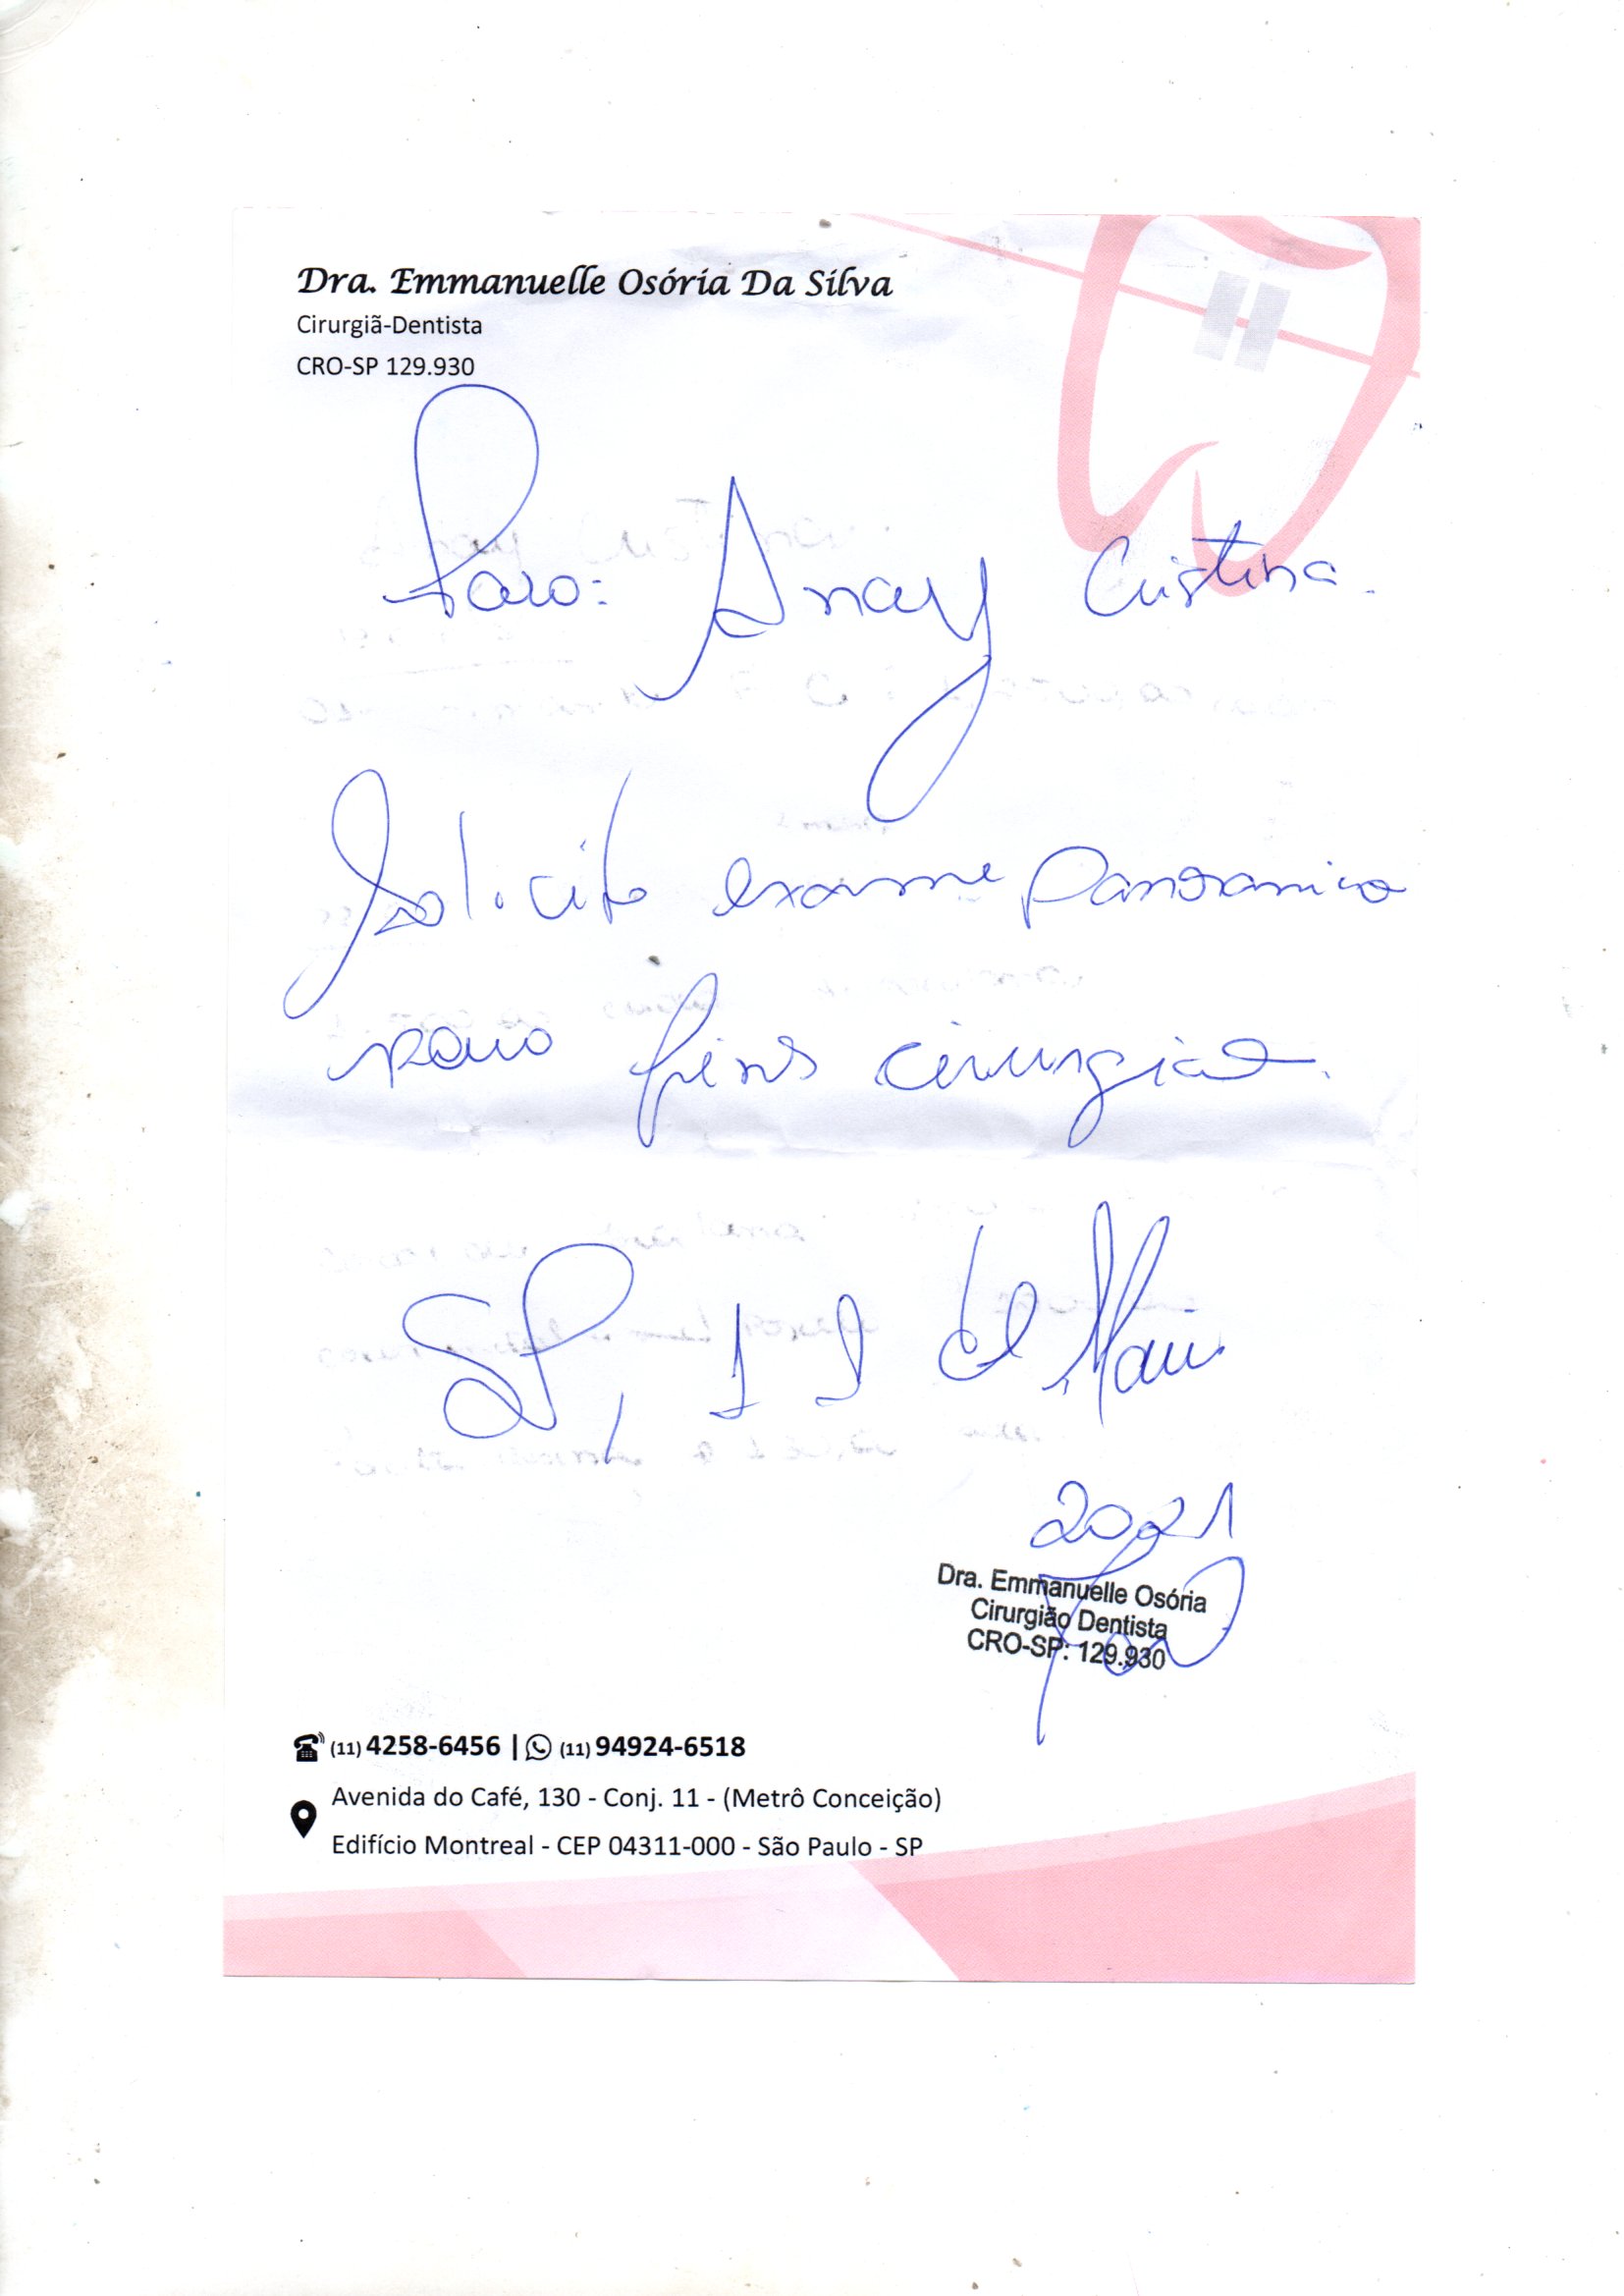 Dra. Emmanuelle Osória Da Silva
Cirurgiã-Dentista
CRO-SP 129.930
Para: Anay Cristina.
Solicito exame panoramico
para fins cirurgico.
SP, 11 de Maio
2021
Dra. Emmanuelle Osória
Cirurgião Dentista
CRO-SP: 129.930
(11) 4258-6456 | (11) 94924-6518
Avenida do Café, 130 - Conj. 11 - (Metrô Conceição)
Edifício Montreal - CEP 04311-000 - São Paulo - SP